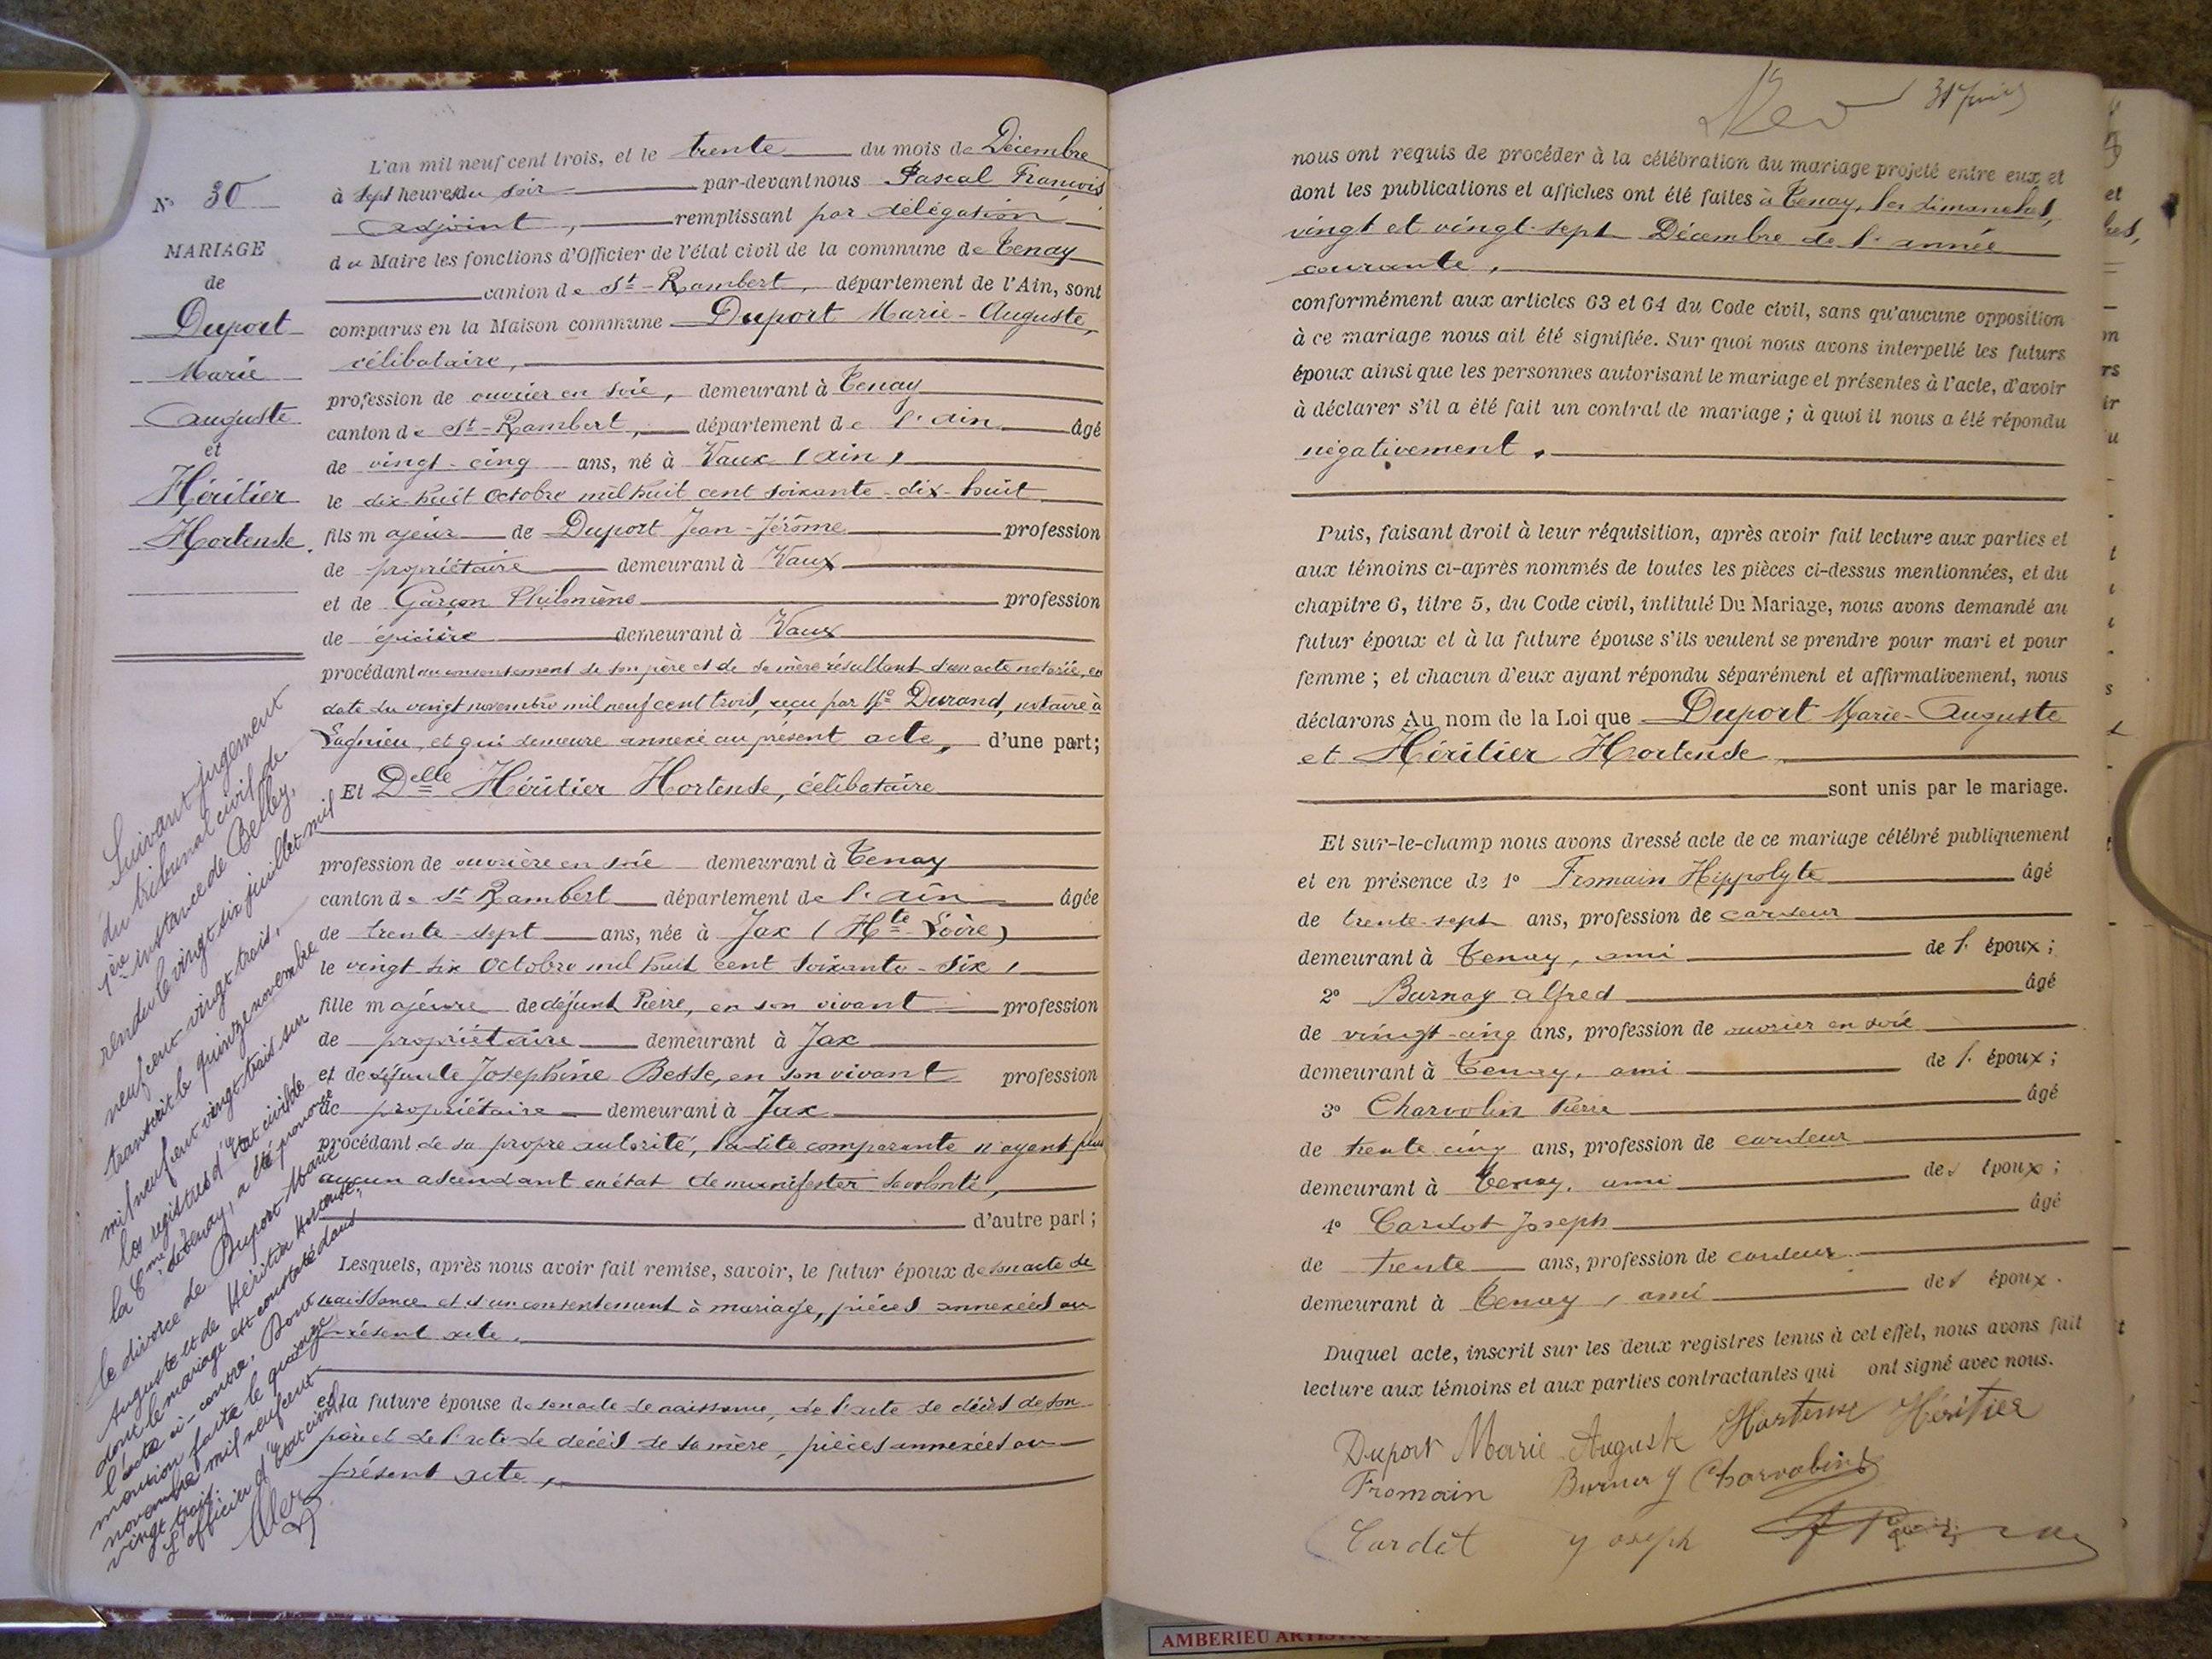 N° 30
MARIAGE
de
Duport
Marie
Auguste
et
Héritier
Hortense.
Suivant jugement
du tribunal civil de
1ère instance de Belley,
rendu le vingt six juillet mil
neuf cent vingt trois,
transcrit le quinze novembre
mil neuf cent vingt trois sur
les registres d'Etat civil de
la Cne de Tenay, a été prononcé
le divorce de Duport Marie
Auguste et de Héritier Hortense,
dont le mariage est constaté dans
l'acte ci-contre. Dont
mention faite le quinze
novembre mil neuf cent
vingt trois.
L'officier d'Etat civil,
L'an mil neuf cent trois, et le trente du mois de Décembre
à sept heures du soir par-devant nous Pascal François
adjoint, remplissant par délégation
du Maire les fonctions d'Officier de l'état civil de la commune de Tenay
canton de St-Rambert, département de l'Ain, sont
comparus en la Maison commune Duport Marie-Auguste,
célibataire,
profession de ouvrier en soie, demeurant à Tenay
canton de St-Rambert, département de l'Ain âgé
de vingt-cinq ans, né à Vaux (Ain)
le dix-huit Octobre mil huit cent soixante-dix-huit
fils majeur de Duport Jean-Jérôme profession
de propriétaire demeurant à Vaux
et de Garçon Philomène profession
de épicière demeurant à Vaux
procédant au consentement de son père et de sa mère résultant d'un acte notarié, en
date du vingt novembre mil neuf cent trois, reçu par Me Durand, notaire à
Lagnieu, et qui demeure annexé au présent acte, d'une part;
Et Delle Héritier Hortense, célibataire
profession de ouvrière en soie demeurant à Tenay
canton de St Rambert département de l'Ain âgée
de trente-sept ans, née à Jax (Hte Loire)
le vingt six Octobre mil huit cent soixante-six,
fille majeure de défunt Pierre, en son vivant profession
de propriétaire demeurant à Jax
et de défunte Joséphine Besse, en son vivant profession
de propriétaire demeurant à Jax
procédant de sa propre autorité, ladite comparante n'ayant plus
aucun ascendant en état de manifester sa volonté,
d'autre part;
Lesquels, après nous avoir fait remise, savoir, le futur époux de son acte de
naissance et d'un consentement à mariage, pièces annexées au
présent acte,
et la future épouse de son acte de naissance, de l'acte de décès de son
père et de l'acte de décès de sa mère, pièces annexées au
présent acte,
nous ont requis de procéder à la célébration du mariage projeté entre eux et
dont les publications et affiches ont été faites à Tenay, les dimanches,
vingt et vingt-sept Décembre de l'année
courante,
conformément aux articles 63 et 64 du Code civil, sans qu'aucune opposition
à ce mariage nous ait été signifiée. Sur quoi nous avons interpellé les futurs
époux ainsi que les personnes autorisant le mariage et présentes à l'acte, d'avoir
à déclarer s'il a été fait un contrat de mariage; à quoi il nous a été répondu
négativement.
Puis, faisant droit à leur réquisition, après avoir fait lecture aux parties et
aux témoins ci-après nommés de toutes les pièces ci-dessus mentionnées, et du
chapitre 6, titre 5, du Code civil, intitulé Du Mariage, nous avons demandé au
futur époux et à la future épouse s'ils veulent se prendre pour mari et pour
femme; et chacun d'eux ayant répondu séparément et affirmativement, nous
déclarons Au nom de la Loi que Duport Marie-Auguste
et Héritier Hortense
sont unis par le mariage.
Et sur-le-champ nous avons dressé acte de ce mariage célébré publiquement
et en présence de 1° Fromain Hippolyte âgé
de trente-sept ans, profession de cardeur
demeurant à Tenay, ami de l'époux;
2° Burnay Alfred âgé
de vingt-cinq ans, profession de ouvrier en soie
demeurant à Tenay, ami de l'époux;
3° Charvolin Pierre âgé
de trente cinq ans, profession de cardeur
demeurant à Tenay, ami des époux;
4° Cardot Joseph âgé
de trente ans, profession de cardeur
demeurant à Tenay, ami des époux.
Duquel acte, inscrit sur les deux registres tenus à cet effet, nous avons fait
lecture aux témoins et aux parties contractantes qui ont signé avec nous.
Duport Marie Auguste Hortense Héritier
Fromain Burnay Charvolin
Cardot Joseph
AMBERIEU